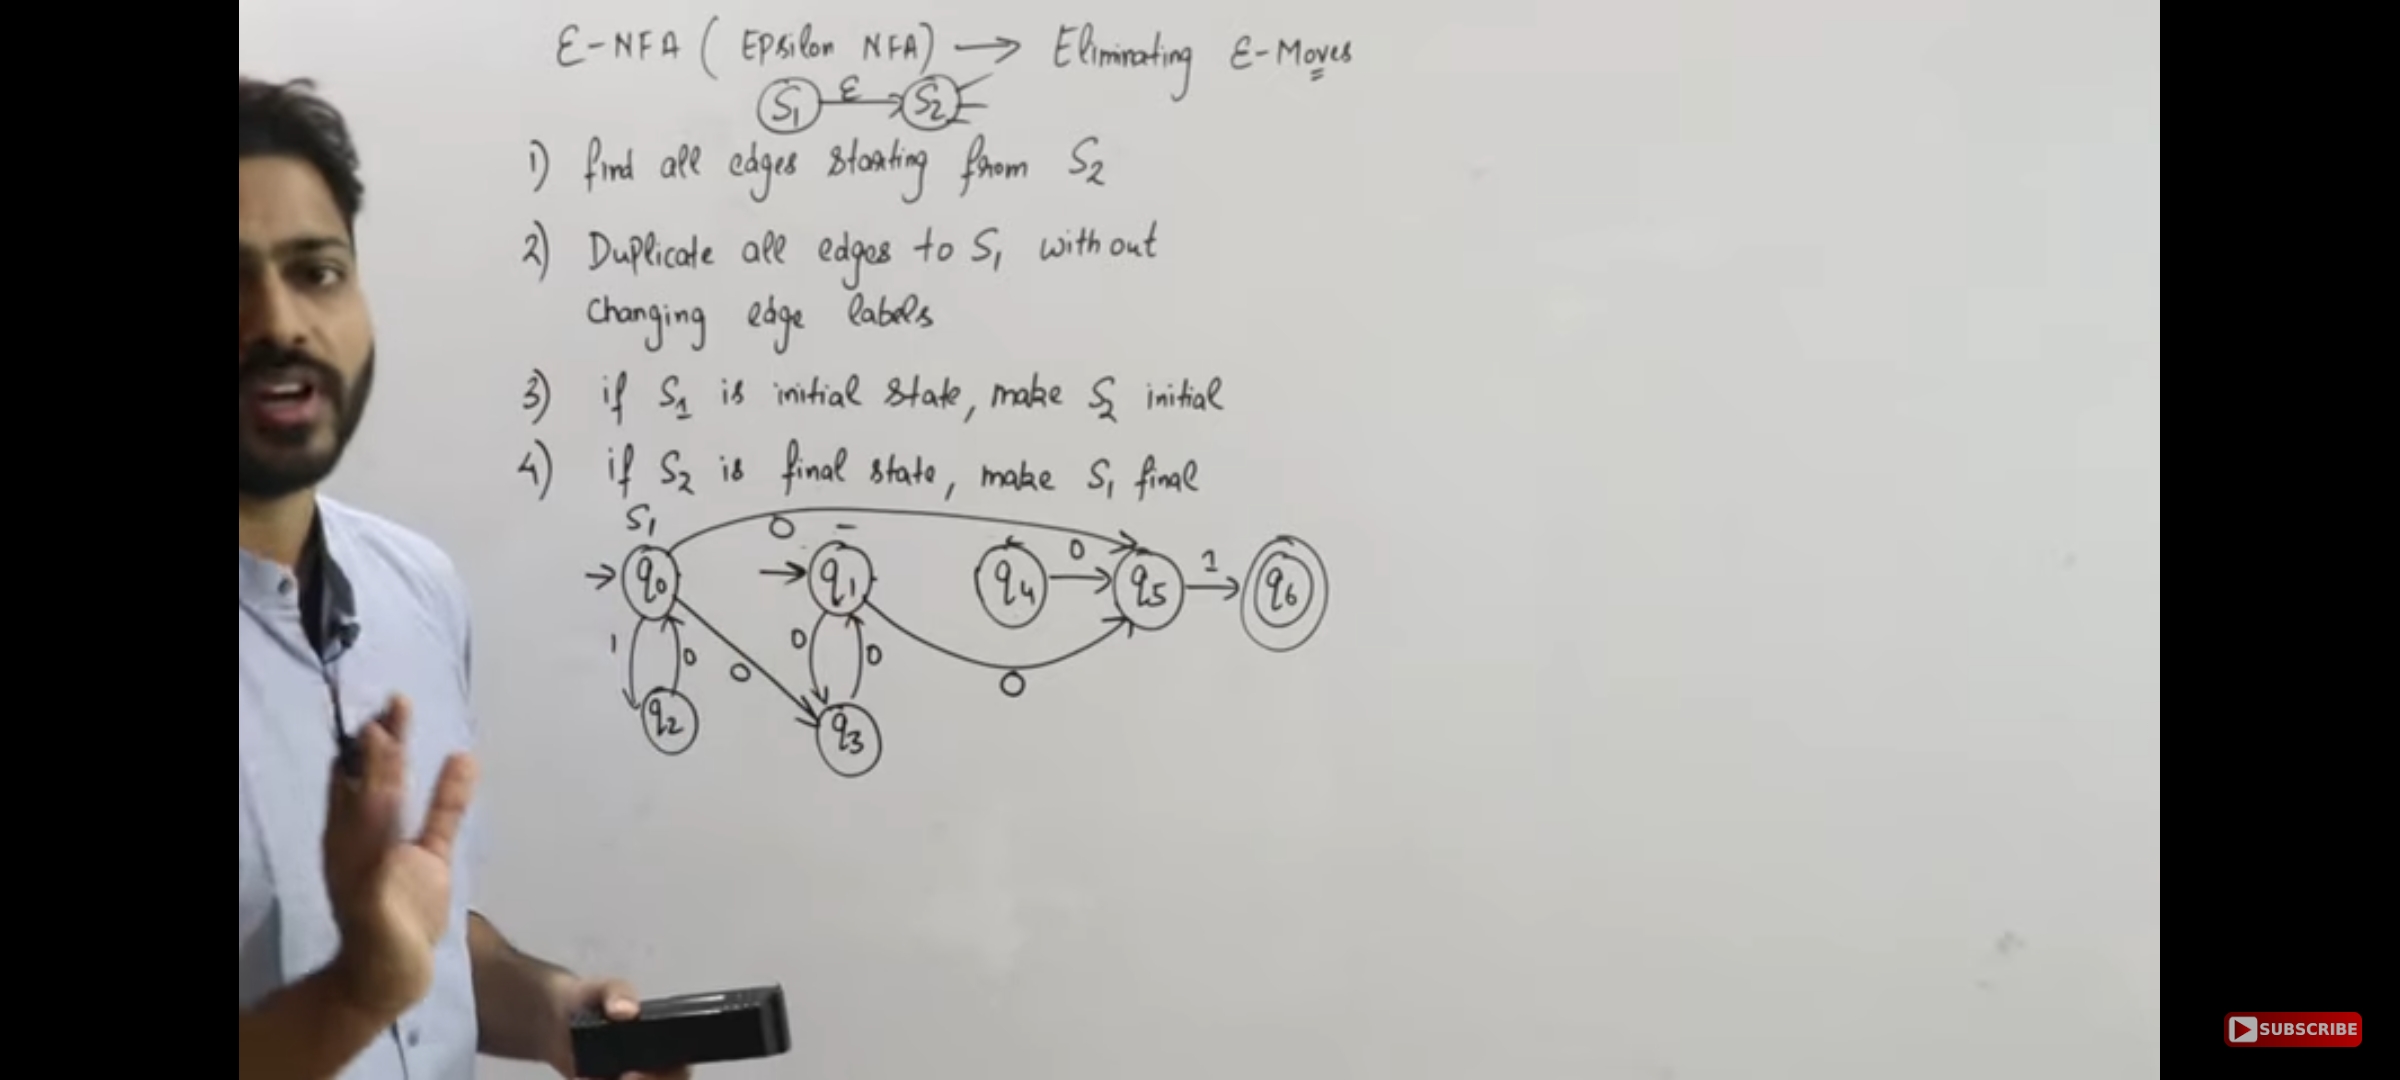 Ɛ-NFA ( Epsilon NFA) → Eliminating Ɛ-Moves
S1 Ɛ S2
1) find all edges starting from S2
2) Duplicate all edges to S1 without
Changing edge labels
3) if S1 is initial state, make S2 initial
4) if S2 is final state, make S1 final
S1
0
q0 q1 q4 0 q5 1 q6
1 0 0 0 0 0
q2 q3
SUBSCRIBE